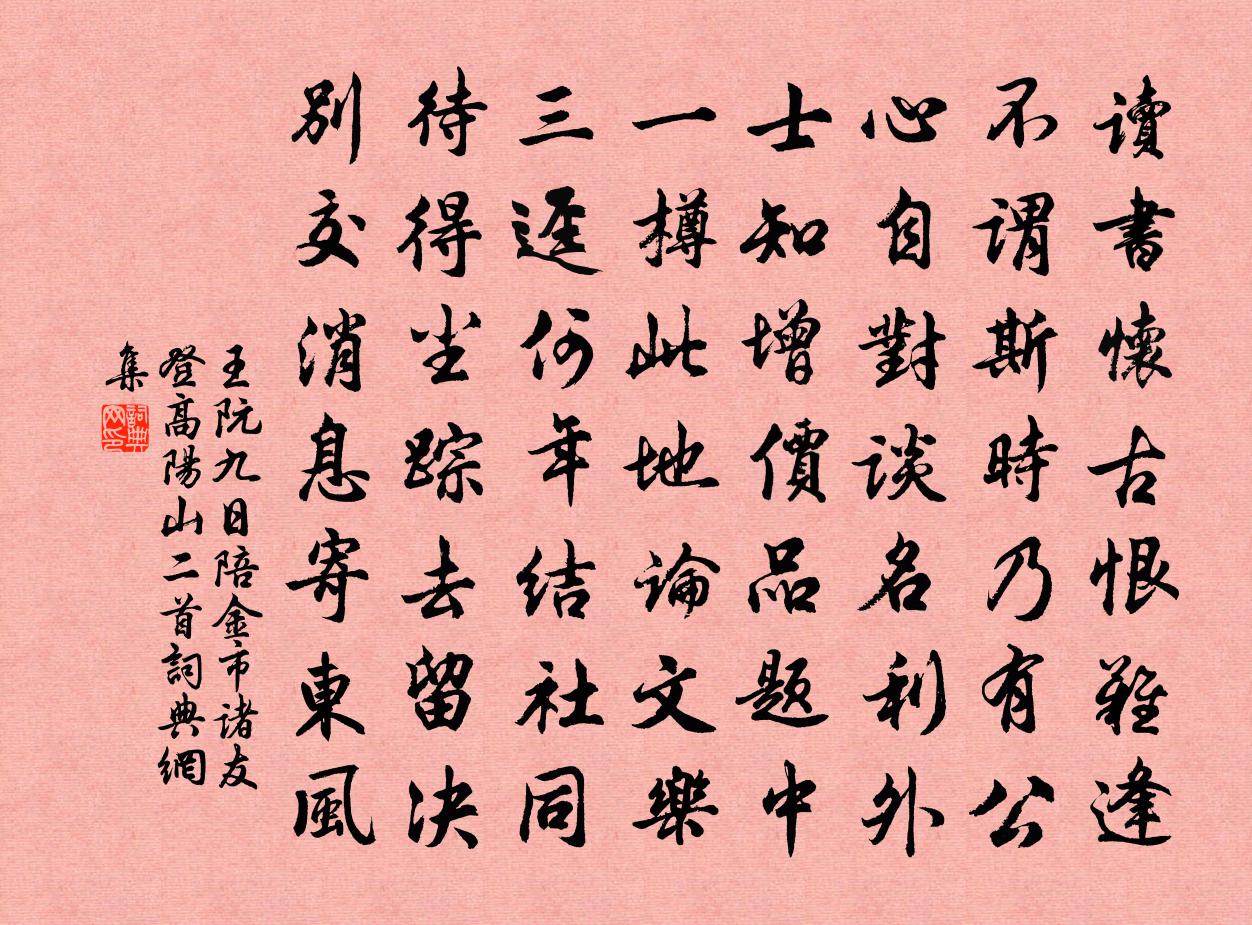 读書懷古恨難逢
不谓斯時乃有公
心自對谈名利外
士知增價品题中
一樽此地論文樂
三迳何年结社同
待得尘踪去留决
别交消息寄東風
王阮九日陪金市诸友
登高陽山二首詞典網
集
詞典网印